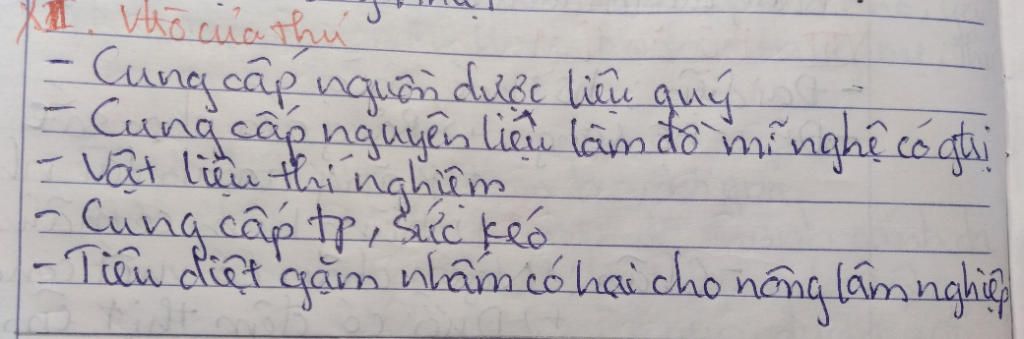 XII. Vtrò của thú
- Cung cấp nguồn dược liệu quý
- Cung cấp nguyên liệu làm đồ mĩ nghệ có gtrị
- Vật liệu thí nghiệm
- Cung cấp tp, sức kéo
- Tiêu diệt gặm nhấm có hại cho nông lâm nghiệp